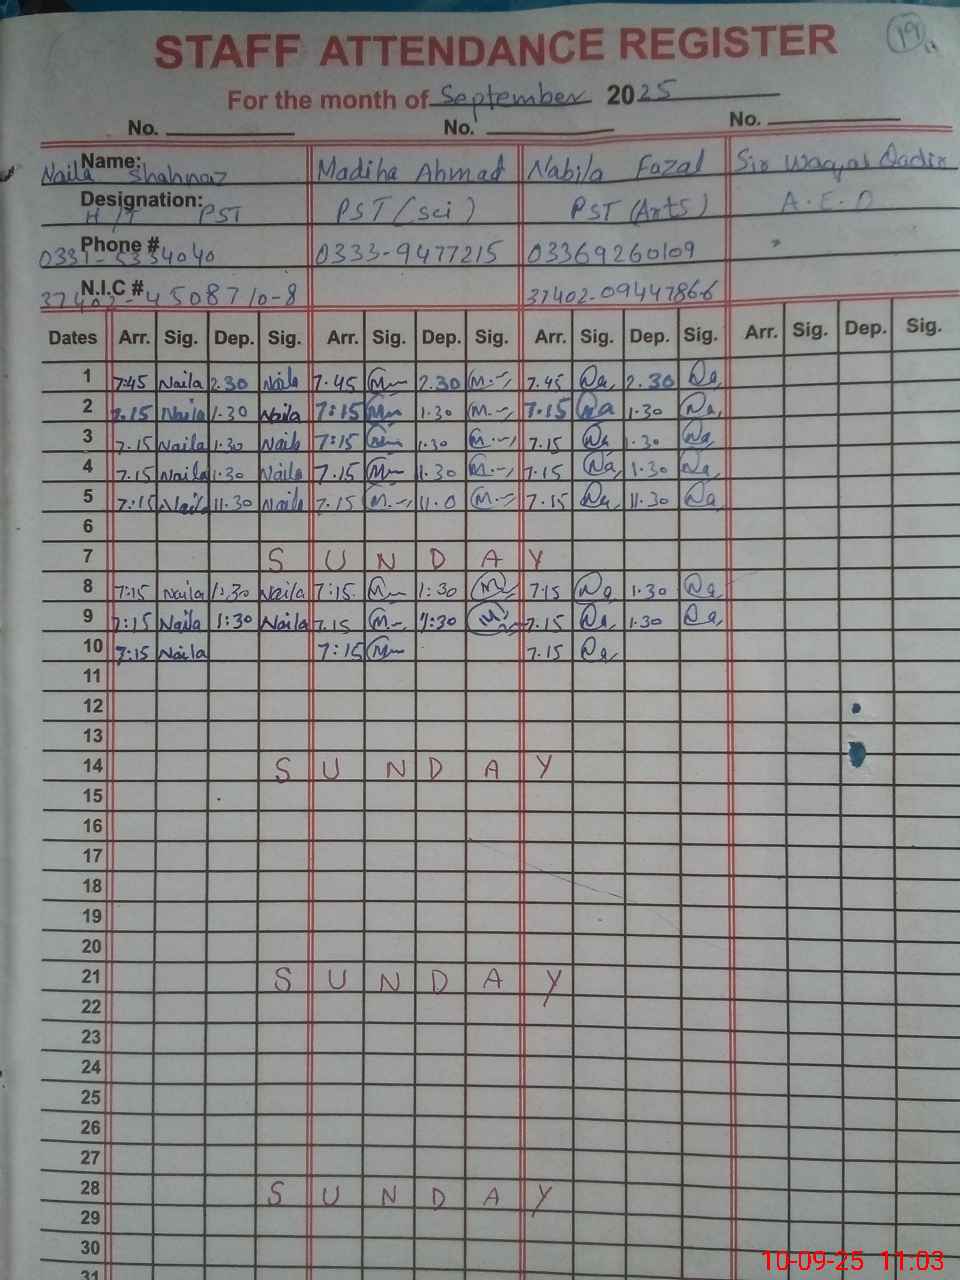 19
STAFF ATTENDANCE REGISTER
For the month of September 2025
No. No. No.
Name: Naila Shahnaz Madiha Ahmad Nabila Fazal Sir Waqas Qadir
Designation: H/T PST PST (sci) PST (Arts) A.E.O
Phone # 0331-5334040 0333-9477215 03369260109
N.I.C # 37402-4508710-8 37402-0944786-6
Dates Arr. Sig. Dep. Sig. Arr. Sig. Dep. Sig. Arr. Sig. Dep. Sig. Arr. Sig. Dep. Sig.
1 7.45 Naila 2.30 Naila 7.45 2.30 7.45 2.30
2 7.15 Naila 1.30 Naila 7:15 1.30 7.15 1.30
3 7.15 Naila 1.30 Naila 7:15 1.30 7.15 1.30
4 7.15 Naila 1.30 Naila 7.15 1.30 7.15 1.30
5 7:15 Naila 11.30 Naila 7.15 11.0 7.15 11.30
6
7 S U N D A Y
8 7:15 Naila 1:30 Naila 7:15 1:30 7.15 1.30
9 7:15 Naila 1:30 Naila 7.15 1:30 7.15 1.30
10 7:15 Naila 7:15 7.15
11
12
13
14 S U N D A Y
15
16
17
18
19
20
21 S U N D A Y
22
23
24
25
26
27
28 S U N D A Y
29
30
31
10-09-25 11.03